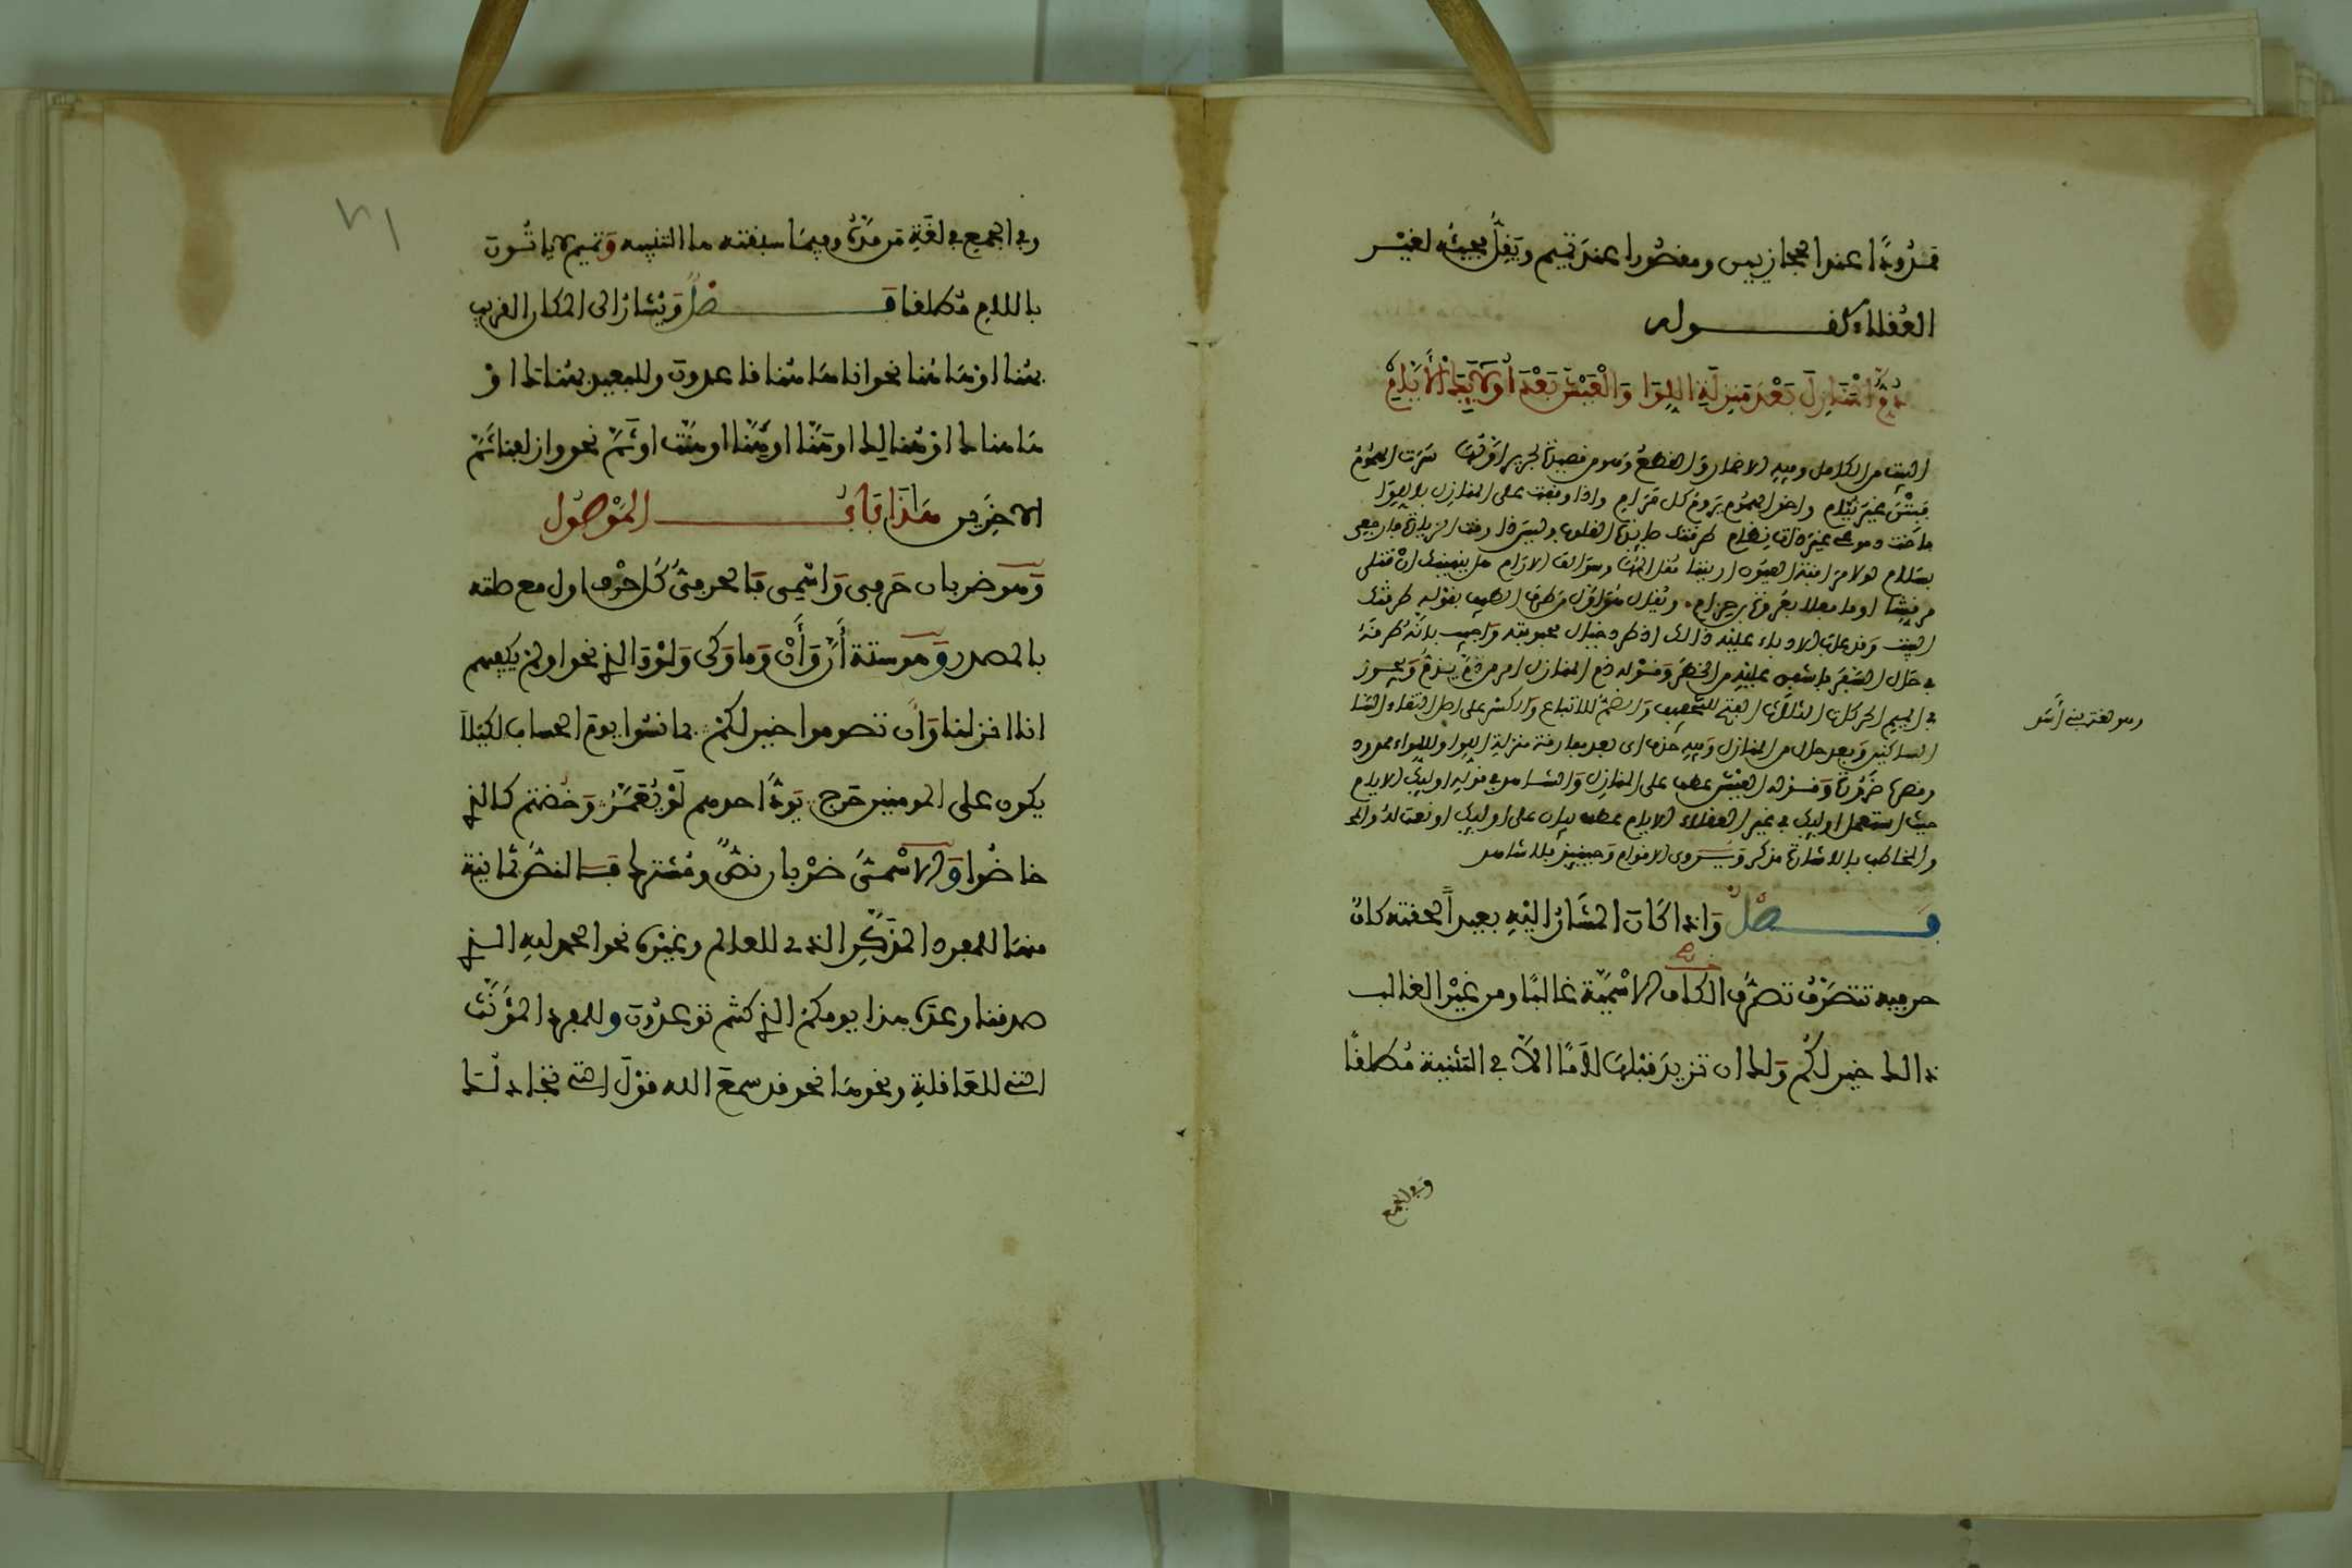 ممدودا عند الحجازيين ومقصورا عند تميم ويقل مجيئه لغير
العقلاء كقوله
ذم المنازل بعد منزلة اللوا والعيش بعد اولائك الايام
البيت من الكامل وفيه الاضمار والقطع وهو من قصيدة لجرير اولها سرت الهموم
فبتن غير نيام واخو الهموم يروم كل مرام واذا وقفت على المنازل باللوا
فاضت دموعي غير ذات نظام طرقتك صائدة القلوب وليس ذا وقت الزيارة فارجعي
بسلام لولا مراقبة العيون اريننا مقل المها وسوالف الارام هل ينهينك ان قتلن
مرقشا او ما فعلن بعروة بن حزام
البيت وقد عاب الادباء عليه ذالك اذ طرد خيال محبوبته واجيب بانه طرقه
في حال السفر فاشفق عليه من الخطر وقوله ذم المنازل امر من ذم يذم ويجوز
في الميم الحركات الثلاث الفتح للتخفيف والضم للاتباع والكسر على اصل التقاء السا
الساكنين وبعد حال من المنازل وفيه حذف اي بعد مفارقة منزلة اللوا واللواء ممدود
وقصره ضرورة وقوله العيش عطف على المنازل والشاهد في قوله اولئك الايام
حيث استعمل اولئك في غير العقلاء الايام عطف بيان على اولئك او نعت له
والمخاطب بالاشارة مذكر ويروى الاقوام وحينئذ فلا شاهد
وهو لغة بني اسد
فصل واذا كان المشار اليه بعيدا لحقته كاف
حرفية تتصرف تصرف الكاف الاسمية غالبا ومن غير الغالب
ذالك خير لكم ولك ان تزيد قبلها لاما الا في التثنية مطلقا
وفي الجمع
وفي الجمع في لغة من مده وفيما سبقته ها التنبيه وتميم لا ياتون
باللام مطلقا فصل ويشار الى المكان القريب
بهنا او هاهنا نحو انا هاهنا قاعدون وللبعيد بهناك او
هاهناك او هنالك او هنا او هنا او هنت او ثم نحو وازلفنا ثم
الاخرين هذا باب الموصول
وهو ضربان حرفي واسمي فالحرفي كل حرف اول مع صلته
بالمصدر وهو ستة أن وأن وما وكي ولو والذي نحو اولم يكفهم
انا انزلنا وان تصوموا خير لكم بما نسوا يوم الحساب لكيلا
يكون على المومنين حرج يود احدهم لو يعمر وخضتم كالذي
خاضوا والاسمي ضربان نص ومشترك فالنص ثمانية
منها للمفرد المذكر الذي للعالم وغيره نحو الحمد لله الذي
صدقنا وعده هذا يومكم الذي كنتم توعدون وللمفرد المؤنث
التي للعاقلة وغيرها نحو قد سمع الله قول التي تجادلك